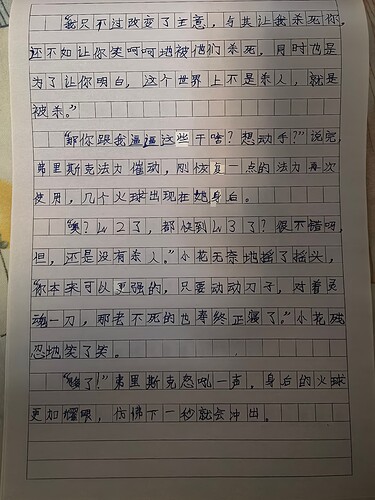 “我只不过改变了主意，与其让我杀死你，
还不如让你笑呵呵地被他们杀死，同时也是
为了让你明白，这个世界上不是杀人，就是
被杀。”
“那你跟我逼逼这些干啥？想动手？”说完，
弗里斯克法力催动，刚恢复一点的法力再次
使用，几个火球出现在她身后。
“噢？LV2了，都快到LV3了？很不错呀，
但，还是没有杀人。”小花无奈地摇了摇头，
“你本来可以更强的，只要动动刀子，对着灵
魂一刀，那老不死的也寿终正寝了。”小花残
忍地笑了笑。
“够了！”弗里斯克怒吼一声，身后的火球
更加耀眼，仿佛下一秒就会冲出。